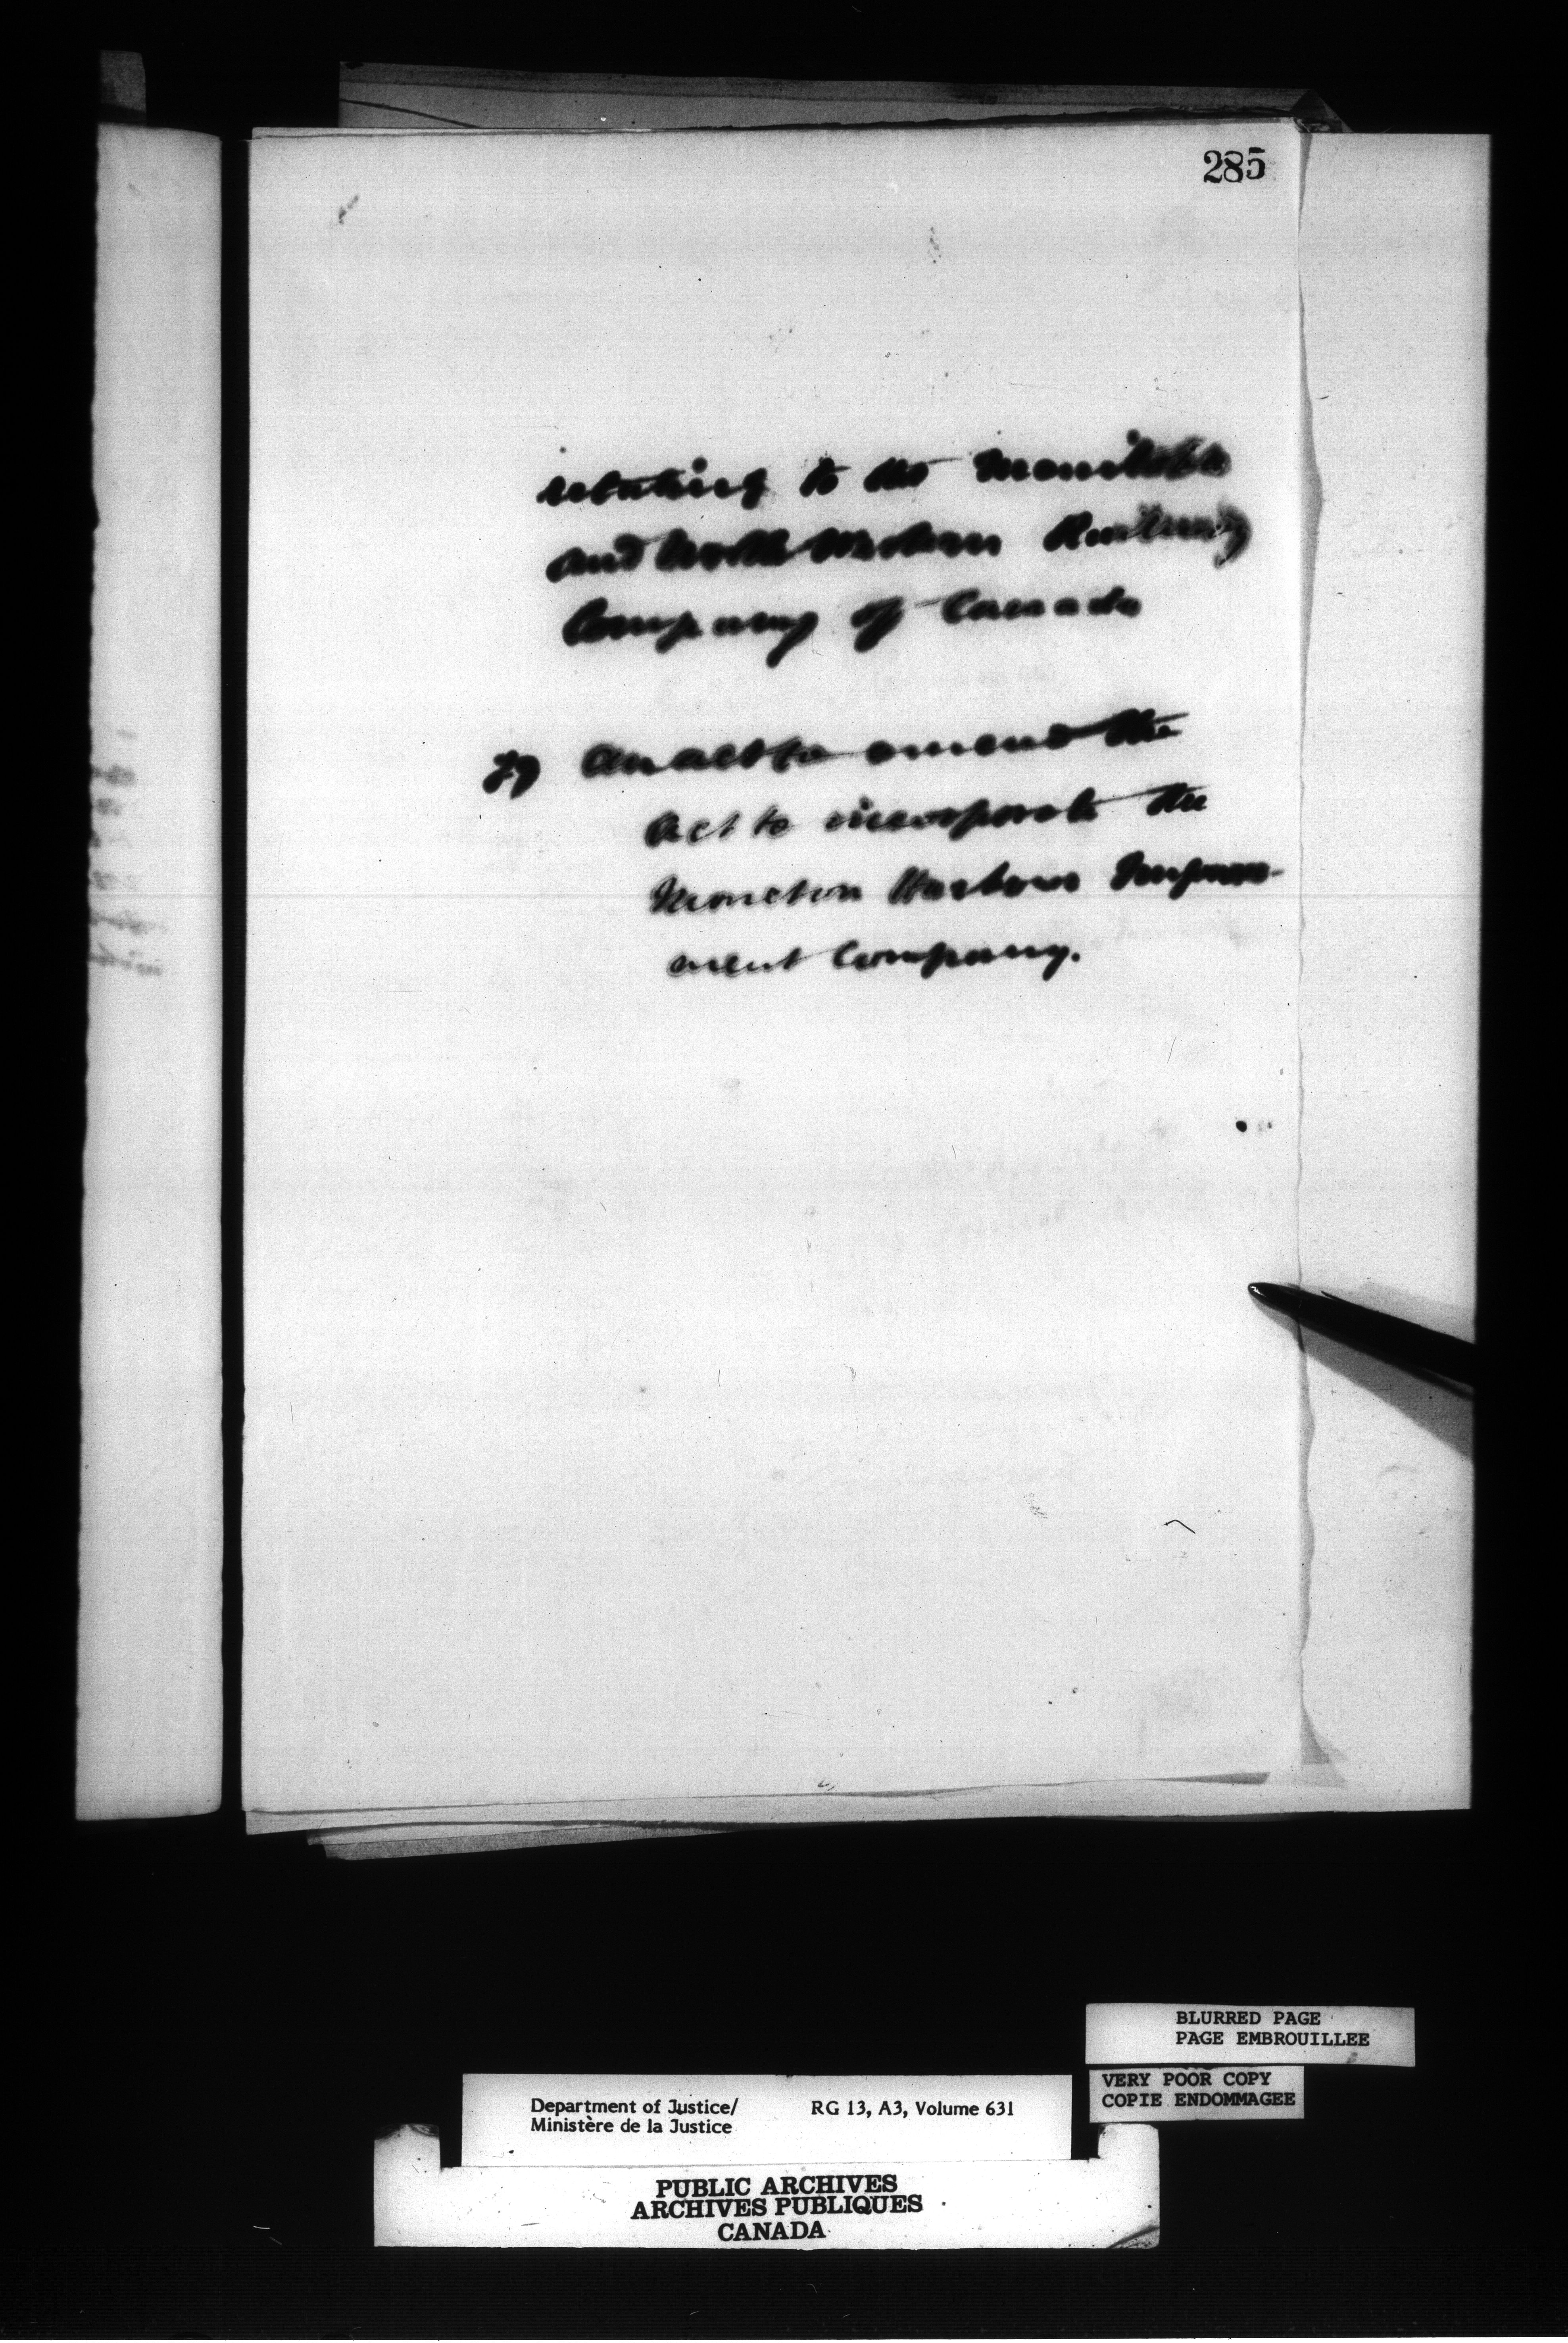 285
relating to the Manitoba
and North Western Railway
Company of Canada
An act to amend the
Act to incorporate the
Moncton Harbour Improve-
ment Company.
BLURRED PAGE
PAGE EMBROUILLEE
VERY POOR COPY
COPIE ENDOMMAGEE
Department of Justice/ RG 13, A3, Volume 631
Ministère de la Justice
PUBLIC ARCHIVES
ARCHIVES PUBLIQUES
CANADA